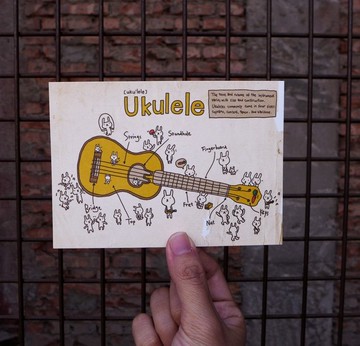 (ukulele)
Ukulele
The tone and volume of the instrument
varies with size and construction.
Ukuleles commonly come in four sizes:
soprano, concert, tenor, and baritone.
Strings
Soundhole
Fingerboard
Bridge
Top
Fret
Nut